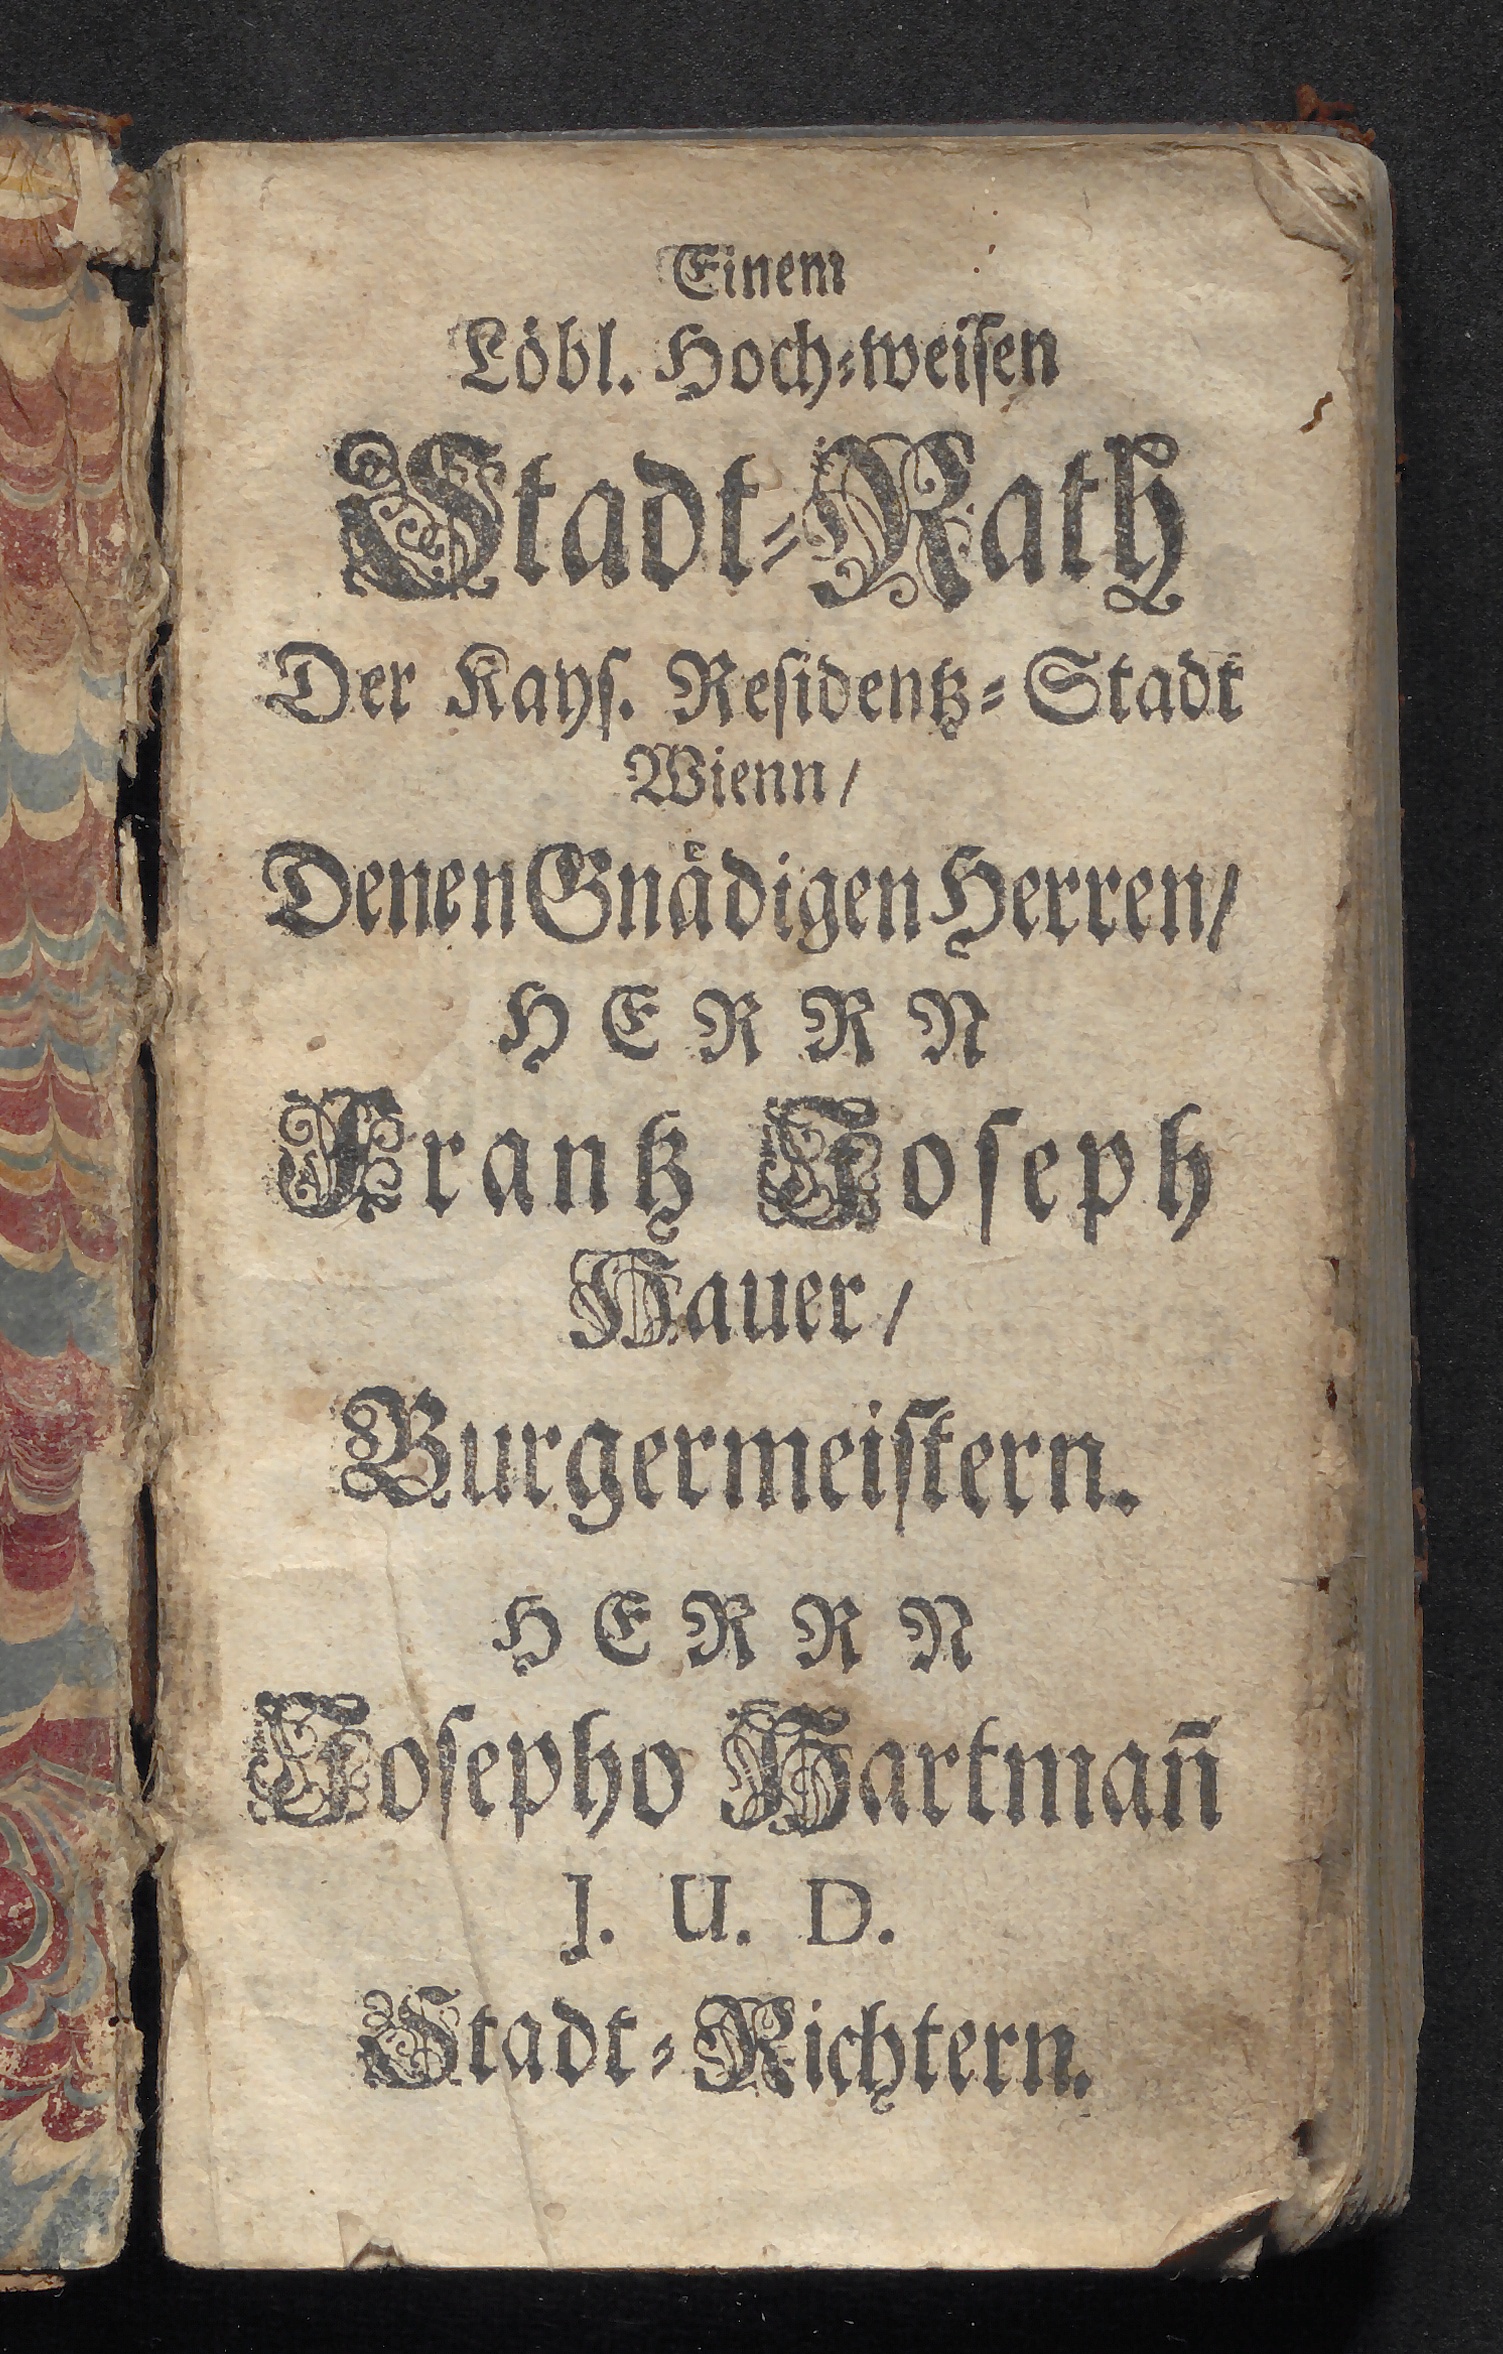 Einem
Löbl. Hoch-weisen
Stadt-Rath
Der Kays. Residentz-Stadt
Wienn/
Denen Gnädigen Herren/
HERRN
Frantz Joseph
Hauer/
Burgermeistern.
HERRN
Josepho Hartman̄
J. U. D.
Stadt-Richtern.